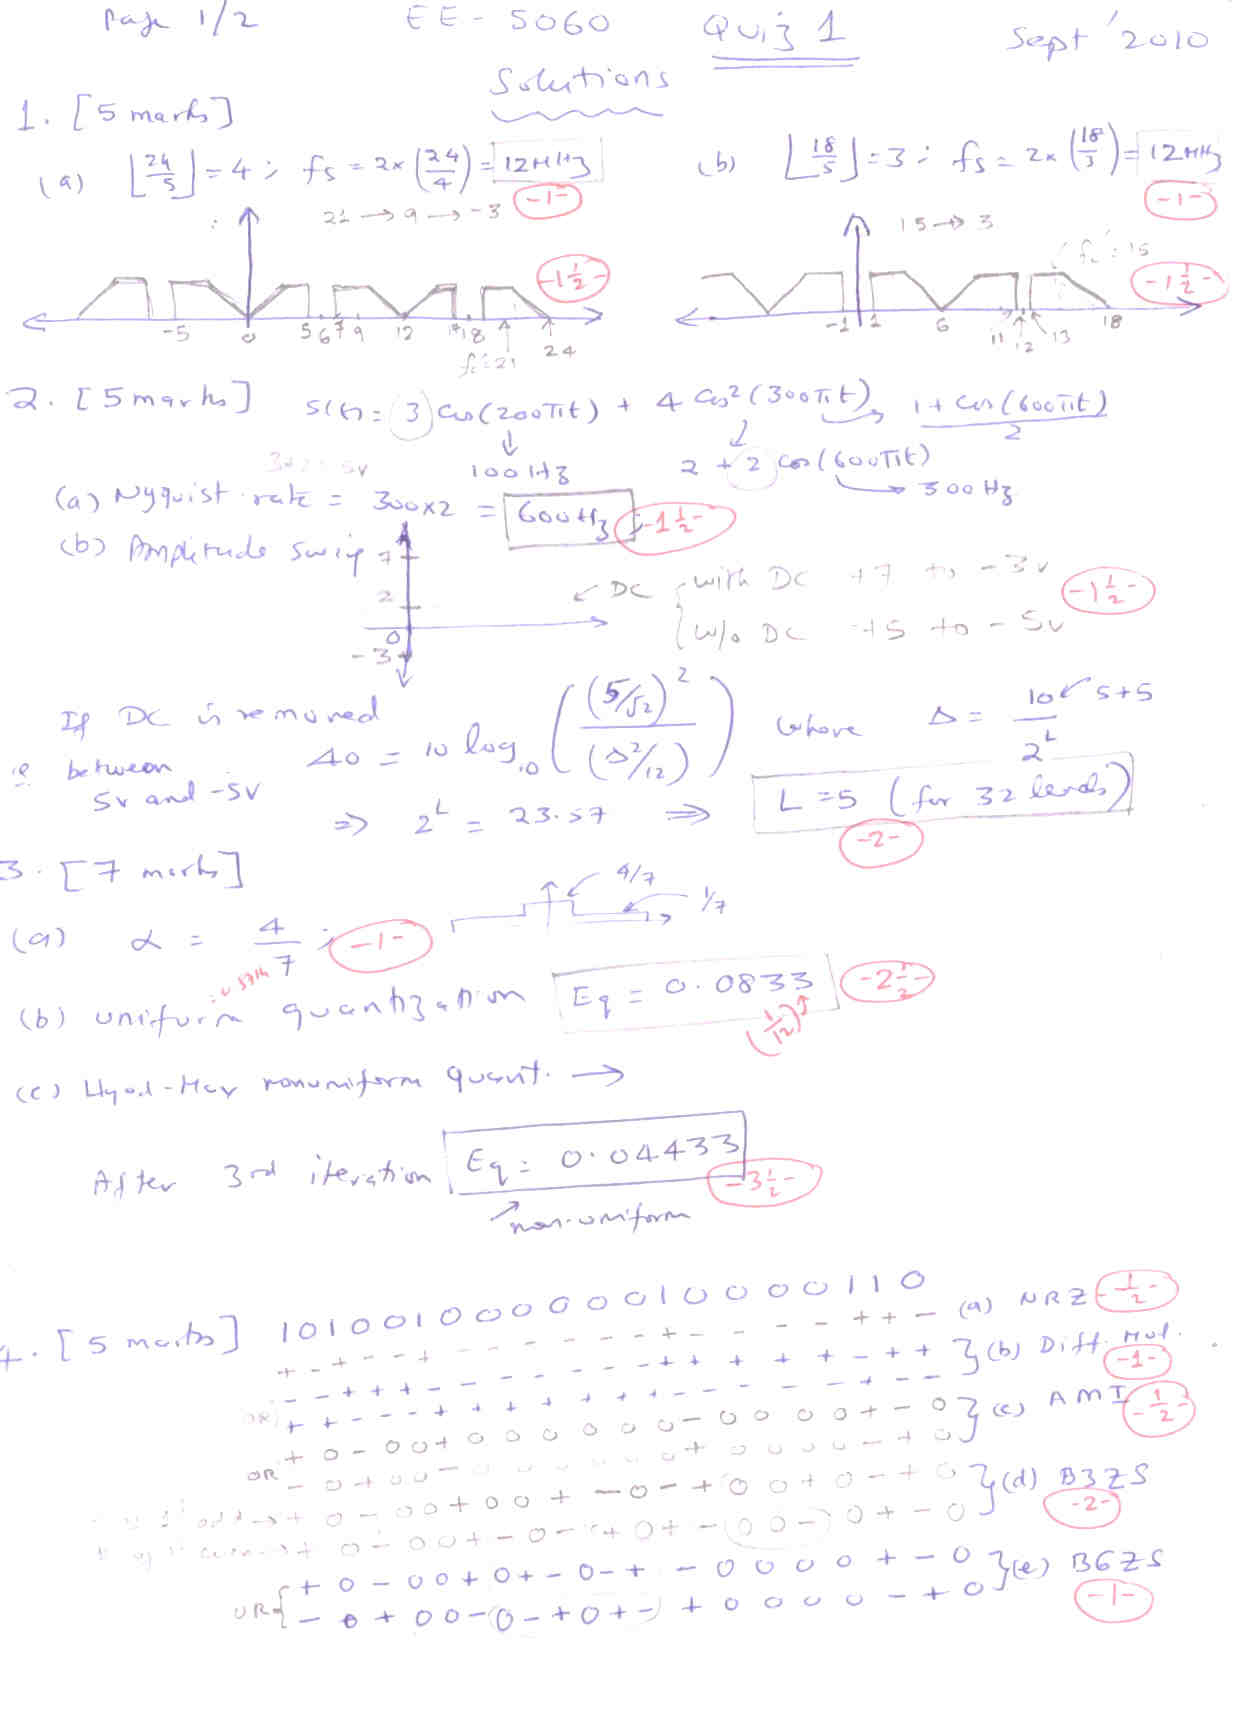 Page 1/2 EE-5060 Quiz 1 Sept '2010
Solutions
1. [5 marks]
(a) ⌊24/5⌋ = 4; fs = 2x (24/4) = 12MHz
-1-
21 → 9 → -3
-1 1/2-
-5 0 5 6 7 9 12 17 18 24
fc = 21
(b) ⌊18/5⌋ = 3; fs = 2x (18/3) = 12MHz
-1-
15 → 3
fc = 15
-1 1/2-
-1 1 6 11 12 13 18
2. [5 marks] s(t) = 3 cos(200πt) + 4 cos²(300πt) → 1 + cos(600πt) / 2
100 Hz 2 + 2 cos(600πt)
→ 300 Hz
(a) Nyquist rate = 300x2 = 600Hz -1 1/2-
(b) Amplitude swing 7
2
0
-3
DC { with DC +7 to -3v
w/o DC +5 to -5v
-1 1/2-
If DC is removed
ie between
5v and -5v
40 = 10 log10 ( (5/√2)² / (Δ²/12) ) where Δ = 10 / 2^L ← 5+5
⇒ 2^L = 23.57 ⇒ L = 5 (for 32 levels)
-2-
3. [7 marks]
(a) α = 4/7; -1- 4/7 1/7
(b) uniform quantization Eq = 0.0833 -2 1/2-
(1/12)
(c) Lloyd-Max nonuniform quant. →
After 3rd iteration Eq = 0.04433
-3 1/2-
non-uniform
4. [5 marks] 101001000000010000110
+ - + - - + - - - - - + - - - - + + - (a) NRZ -1/2-
- - + + + - - - - - - + + + + + - + + } (b) Diff.
OR + + - - - + + + + + + - - - - - + - - -1-
+ 0 - 0 0 + 0 0 0 0 0 - 0 0 0 0 + - 0 } (c) AMI -1/2-
OR - 0 + 0 0 - 0 0 0 0 0 + 0 0 0 0 - + 0
odd → + 0 - 0 0 + 0 0 + - 0 - + 0 0 + 0 - + 0 } (d) B3ZS
even → + 0 - 0 0 + - 0 - + 0 + - 0 0 - 0 + - 0 -2-
OR { + 0 - 0 0 + 0 + - 0 - + - 0 0 0 0 + - 0 } (e) B6ZS
- 0 + 0 0 - 0 - + 0 + - + 0 0 0 0 - + 0 -1-